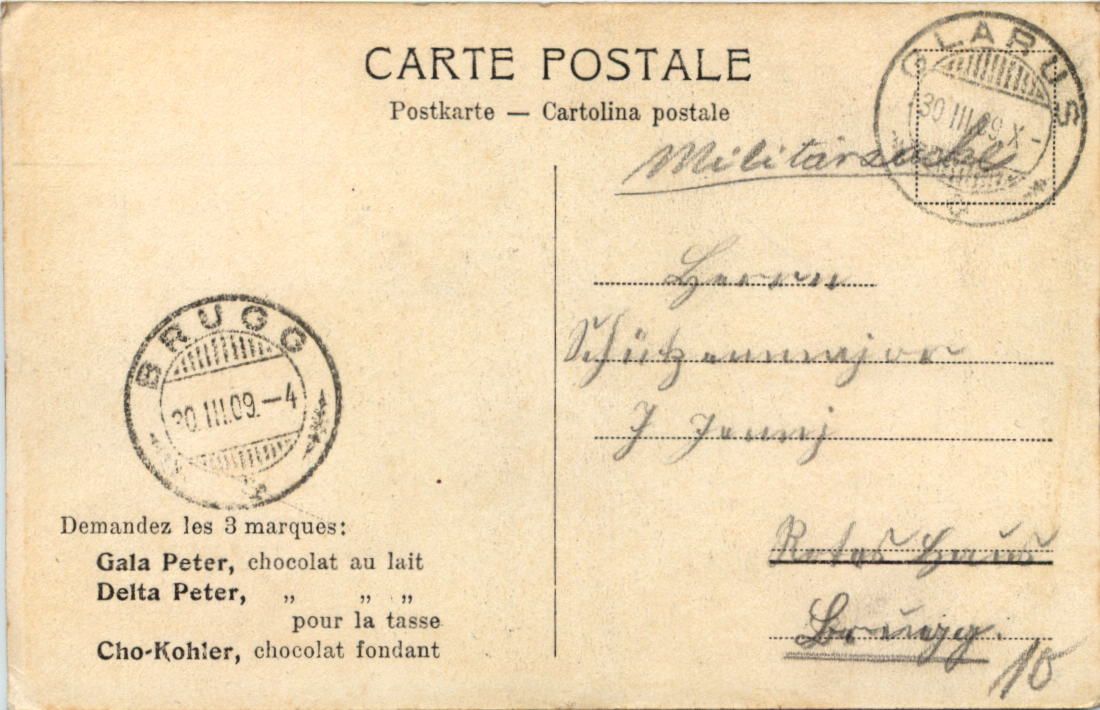 CARTE POSTALE
Postkarte — Cartolina postale
GLARUS
30 III 09 X -
Militärsache
Herrn
Schützenmajor
J Jenny
Rotes Haus
Brugg.
10
BRUGG
30.III.09.–4
Demandez les 3 marques:
Gala Peter, chocolat au lait
Delta Peter, „ „ „
pour la tasse
Cho-Kohler, chocolat fondant